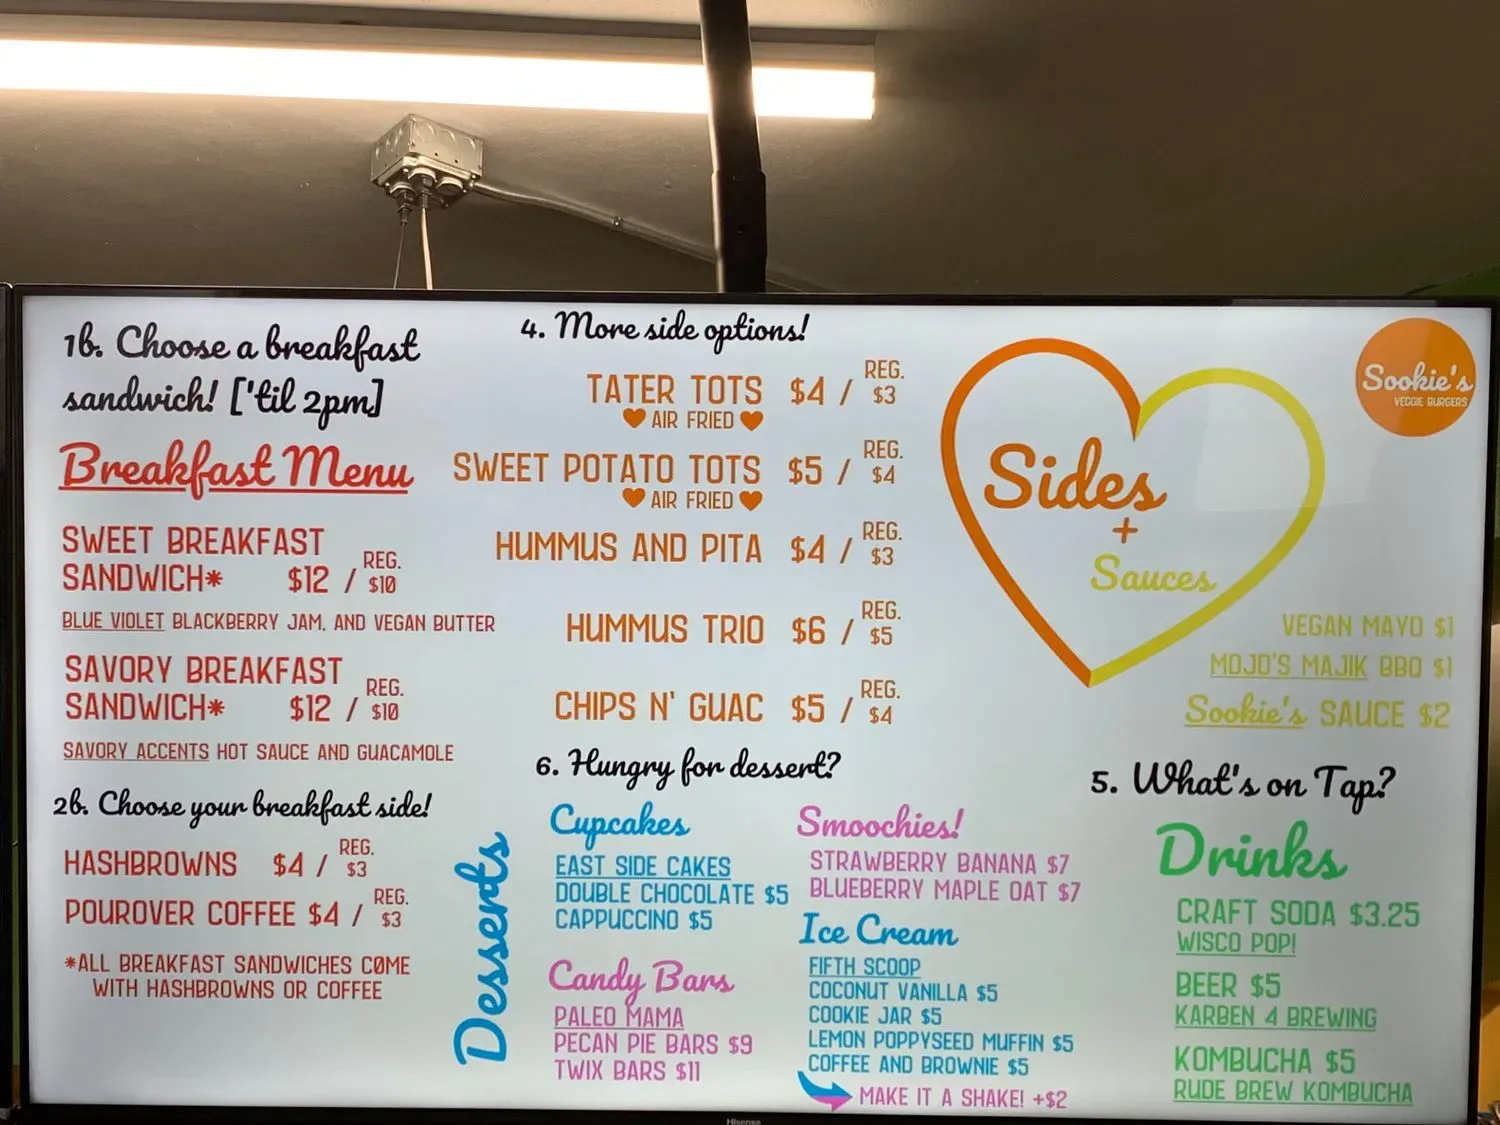 1b. Choose a breakfast
sandwich! ['til 2pm]
Breakfast Menu
SWEET BREAKFAST
SANDWICH* $12 / REG. $10
BLUE VIOLET BLACKBERRY JAM, AND VEGAN BUTTER
SAVORY BREAKFAST
SANDWICH* $12 / REG. $10
SAVORY ACCENTS HOT SAUCE AND GUACAMOLE
2b. Choose your breakfast side!
HASHBROWNS $4 / REG. $3
POUROVER COFFEE $4 / REG. $3
*ALL BREAKFAST SANDWICHES COME
WITH HASHBROWNS OR COFFEE
4. More side options!
TATER TOTS $4 / REG. $3
AIR FRIED
SWEET POTATO TOTS $5 / REG. $4
AIR FRIED
HUMMUS AND PITA $4 / REG. $3
HUMMUS TRIO $6 / REG. $5
CHIPS N' GUAC $5 / REG. $4
Sides
+
Sauces
Sookie's
VEGGIE BURGERS
VEGAN MAYO $1
MOJO'S MAJIK BBQ $1
Sookie's SAUCE $2
6. Hungry for dessert?
Desserts
Cupcakes
EAST SIDE CAKES
DOUBLE CHOCOLATE $5
CAPPUCCINO $5
Candy Bars
PALEO MAMA
PECAN PIE BARS $9
TWIX BARS $11
Smoochies!
STRAWBERRY BANANA $7
BLUEBERRY MAPLE OAT $7
Ice Cream
FIFTH SCOOP
COCONUT VANILLA $5
COOKIE JAR $5
LEMON POPPYSEED MUFFIN $5
COFFEE AND BROWNIE $5
MAKE IT A SHAKE! +$2
5. What's on Tap?
Drinks
CRAFT SODA $3.25
WISCO POP!
BEER $5
KARBEN 4 BREWING
KOMBUCHA $5
RUDE BREW KOMBUCHA
Hisense